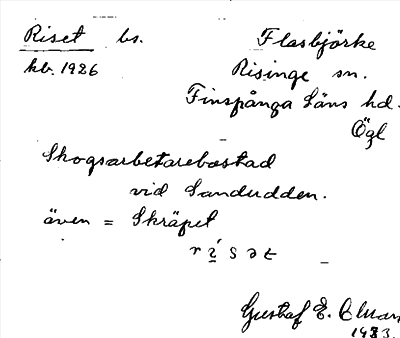 Riset bs. Flasbjörke
kb. 1926 Risinge sn.
Finspånga läns hd.
Ögl
Skogsarbetarebostad
vid Sandudden.
även = Skräpet
rísət
Gustaf E.
1933.